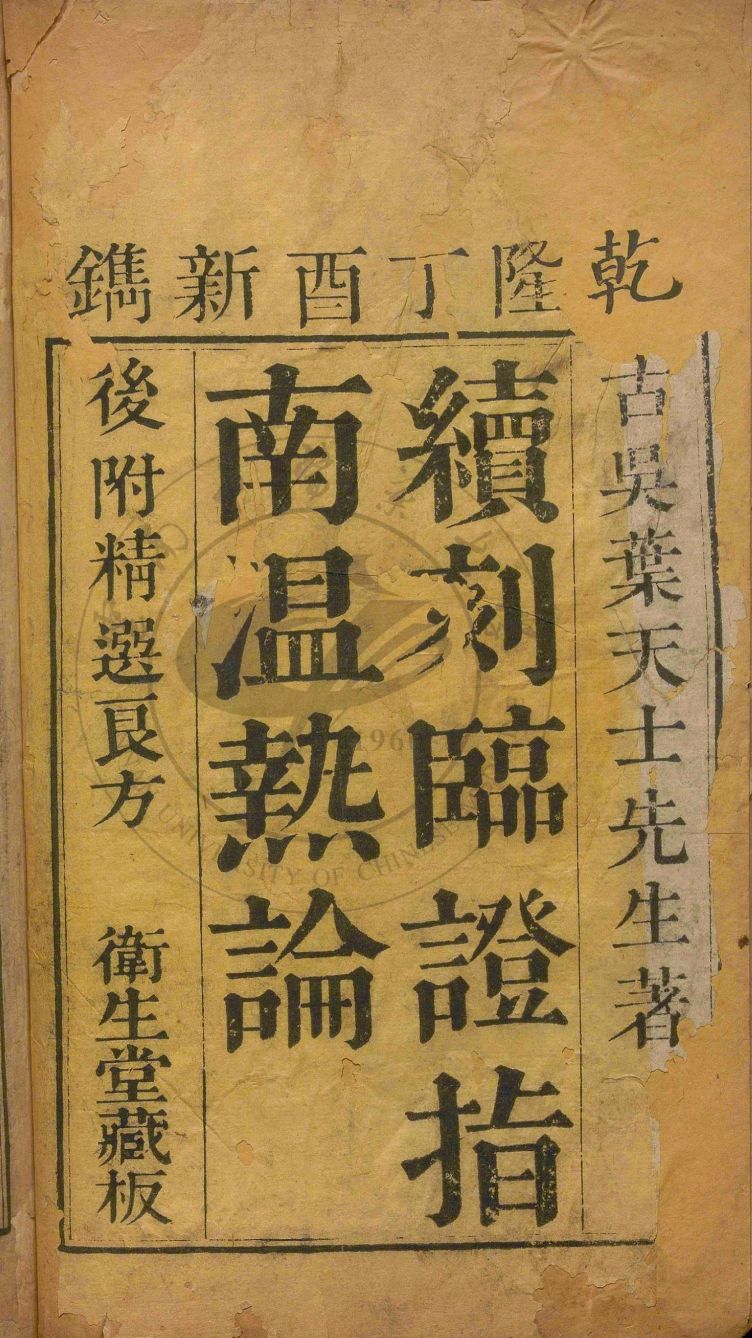 乾隆丁酉新鐫
古吳葉天士先生著
續刻臨證指
南温熱論
後附精選良方
衛生堂藏板